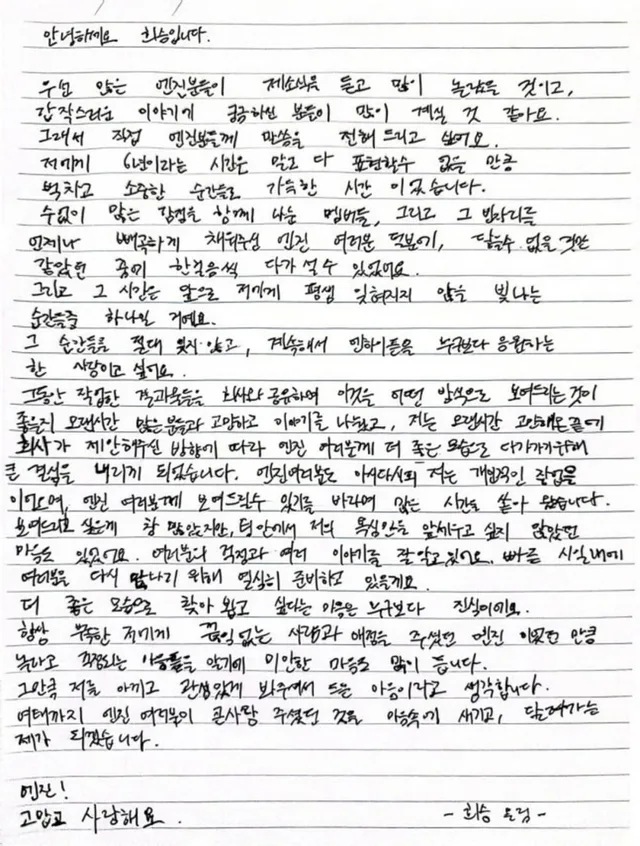 안녕하세요 희승입니다.
우선 많은 엔진분들이 제소식을 듣고 많이 놀랐을 것이고,
갑작스러운 이야기에 궁금하신 분들이 많이 계실 것 같아요.
그래서 직접 엔진분들께 말씀을 전해 드리고 싶어요.
저에게 6년이라는 시간은 말로 다 표현할수 없을 만큼
벅차고 소중한 순간들로 가득한 시간 이었습니다.
수없이 많은 감정을 함께 나눈 멤버들, 그리고 그 빈자리를
언제나 빼곡하게 채워주신 엔진 여러분 덕분에, 닿을수 없을 것만
같았던 꿈에 한걸음씩 다가 설 수 있었어요.
그리고 그 시간은 앞으로 저에게 평생 잊혀지지 않을 빛나는
순간들중 하나일 거예요.
그 순간들을 절대 잊지 않고, 계속해서 엔하이픈을 누구보다 응원하는
한 사람이고 싶어요.
그동안 작업한 결과물들을 회사와 공유하며 이것을 어떤 방식으로 보여드리는것이
좋을지 오랜시간 많은분들과 고민하고 이야기를 나눴고, 저는 오랜시간 고민해온끝에
회사가 제안해주신 방향에 따라 엔진 여러분께 더 좋은 모습으로 다가가기위해
큰 결심을 내리게 되었습니다. 엔진여러분도 아시다시피 저는 개인적인 작업을
이어오며, 엔진 여러분께 보여드릴수 있기를 바라며 많은 시간을 쏟아 왔습니다.
보여드리고 싶은게 참 많았지만, 팀 안에서 저의 욕심만을 앞세우고 싶지 않았던
마음도 있었어요. 여러분의 걱정과 여러 이야기를 잘 알고 있어요. 빠른 시일내에
여러분을 다시 만나기 위해 열심히 준비하고 있을게요.
더 좋은 모습으로 찾아 뵙고 싶다는 마음은 누구보다 진심이에요.
항상 부족한 저에게 끊임 없는 사랑과 애정을 주셨던 엔진 이었던 만큼
놀라고 걱정되는 마음들을 알기에 미안한 마음도 많이 듭니다.
그만큼 저를 아끼고 관심있게 봐주셔서 드는 마음이라고 생각합니다.
여태까지 엔진 여러분이 큰사랑 주셨던 것을 마음속에 새기고, 달려가는
제가 되겠습니다.
엔진!
고맙고 사랑해요. - 희승 올림 -